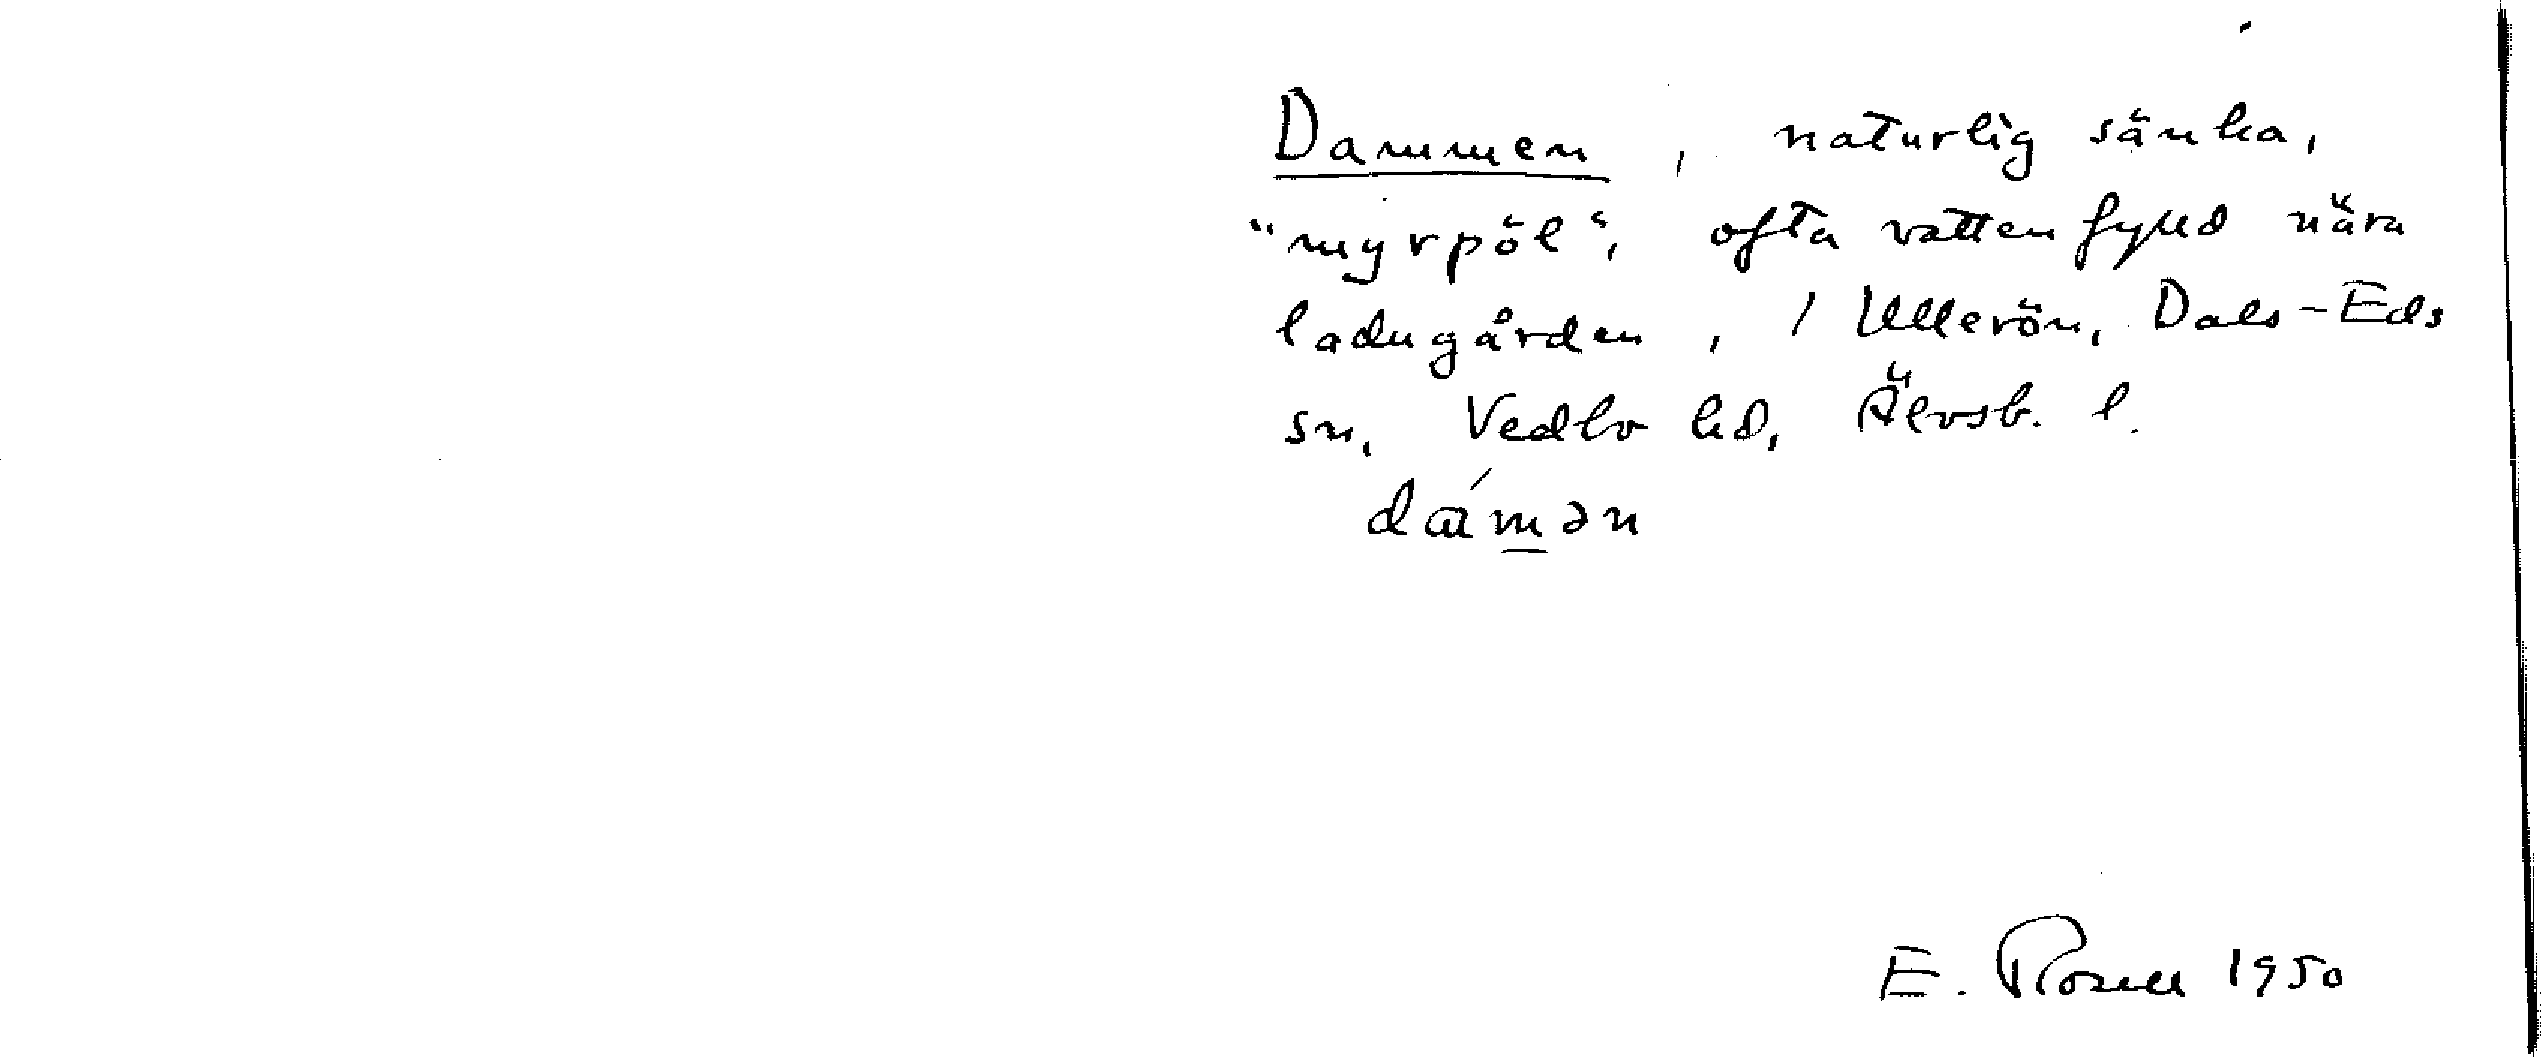 Dammen, naturlig sänka,
"myrpöl", ofta vattenfylld nära
ladugården, / Ullerön, Dals-Eds
sn, Vedbo hd, Älvsb. l.
dám̲ən
E. Rosell 1950